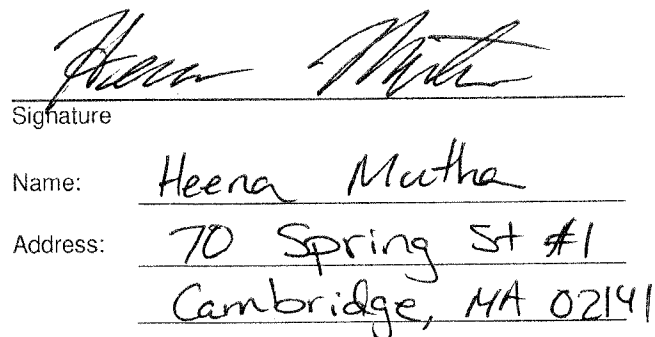 Heena Mutha
Signature
Name: Heena Mutha
Address: 70 Spring St #1
Cambridge, MA 02141